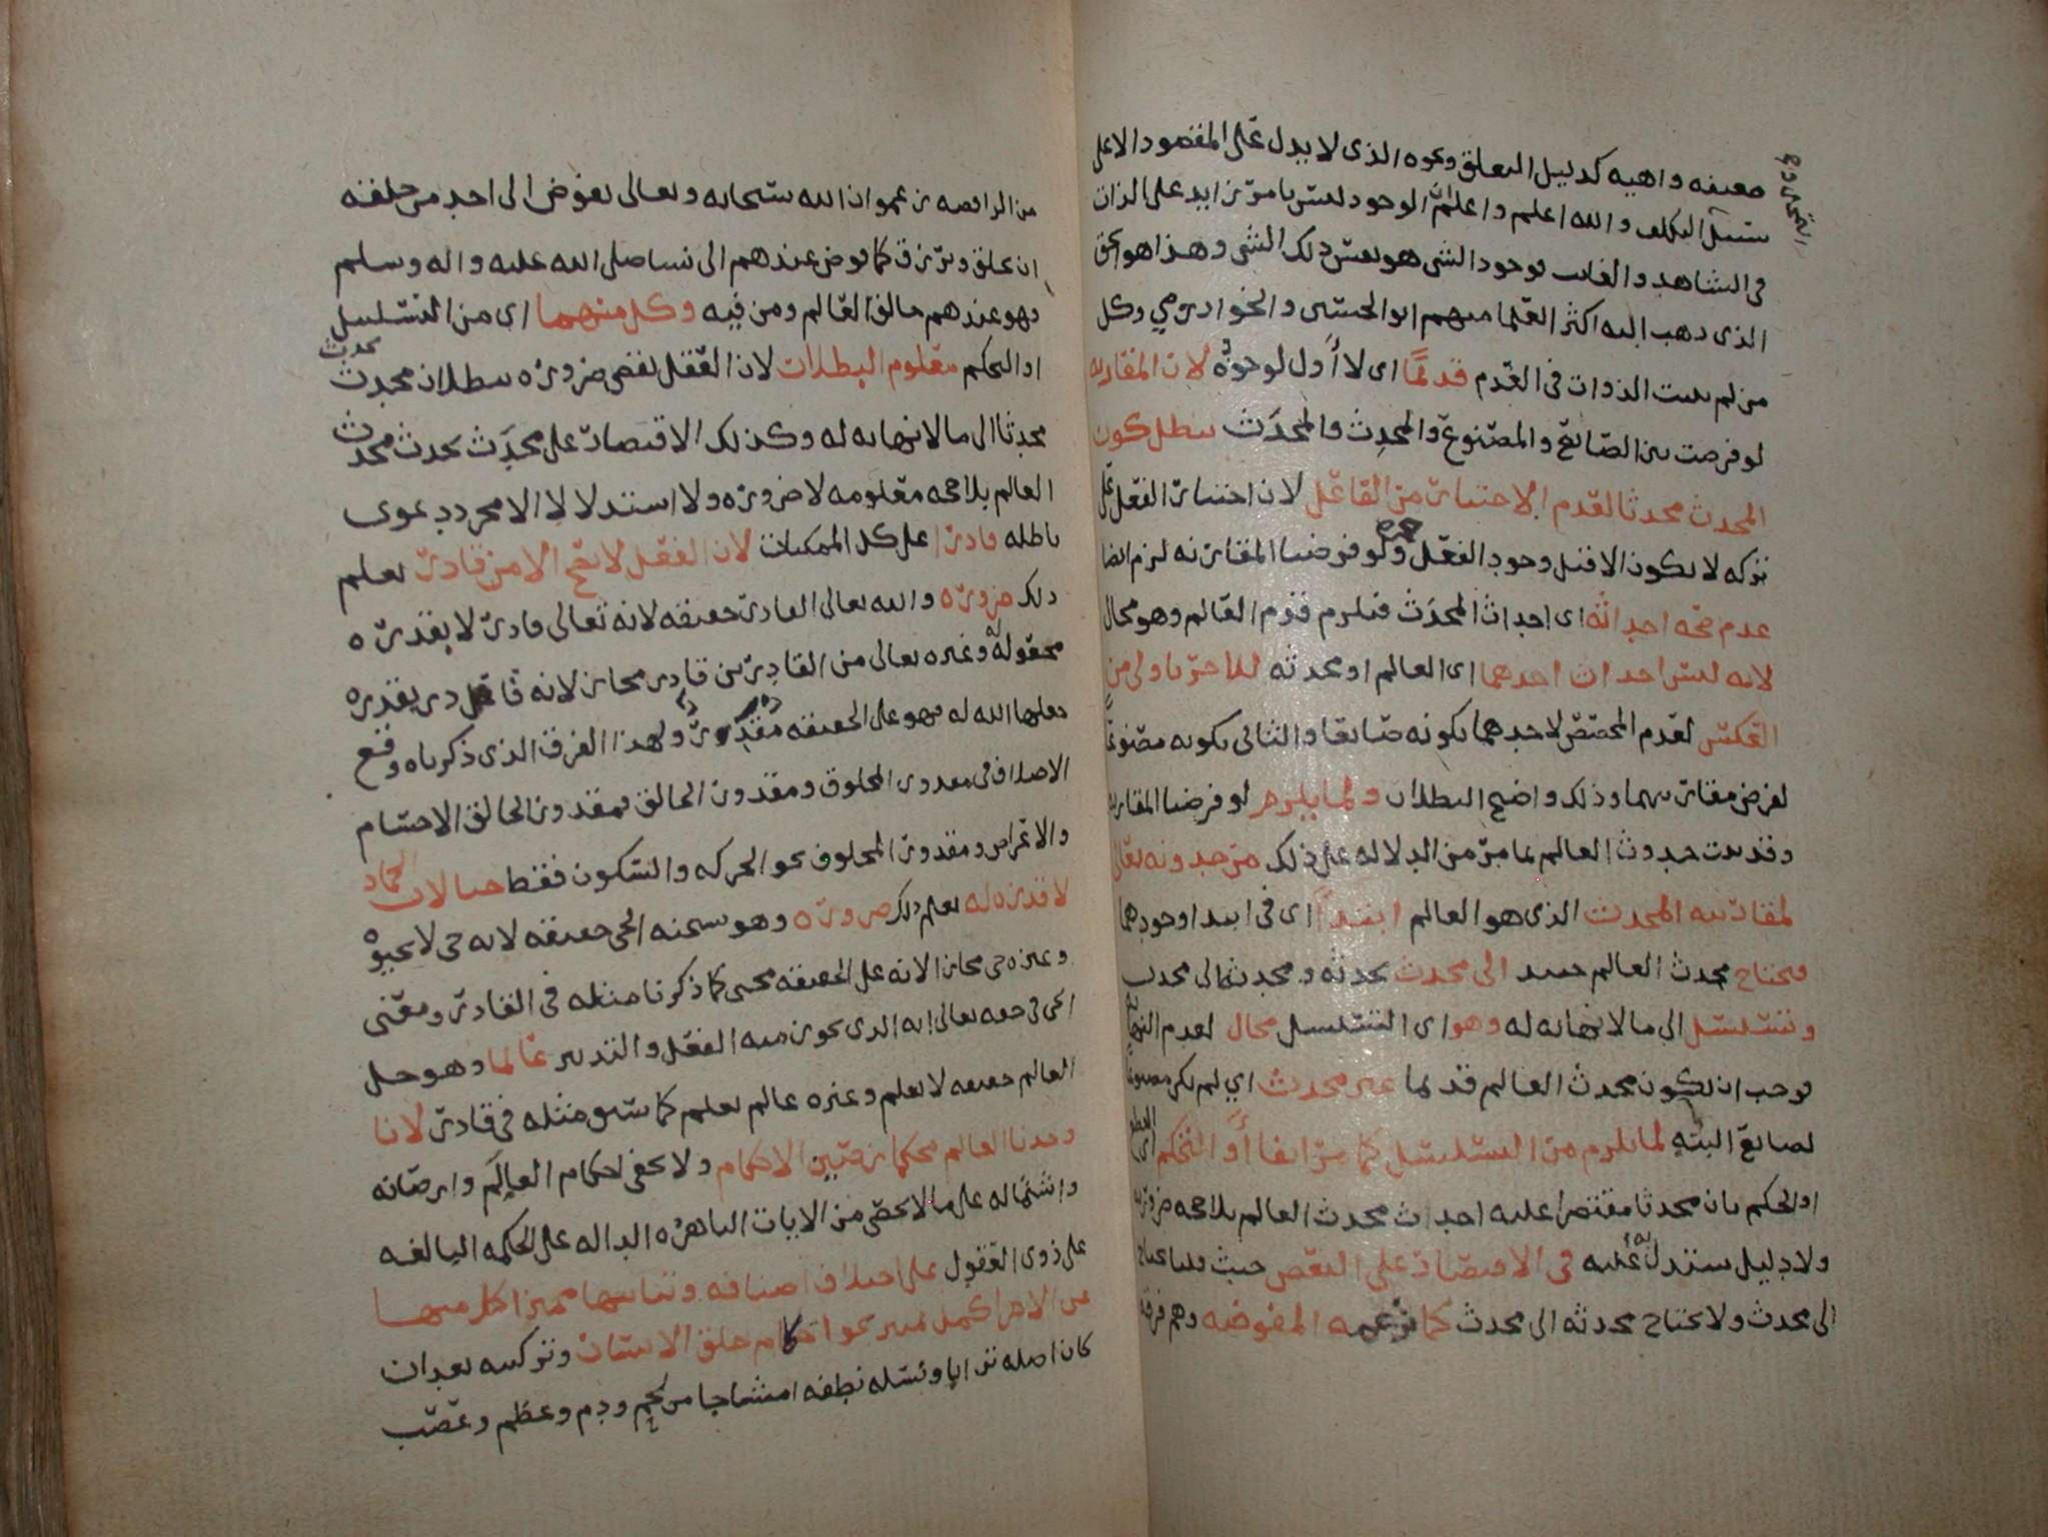 ضعيفه واهيه كدليل التعلق ونحوه الذى لا يدل على المقصود الا على
سبيل التكلف والله اعلم واعلم ان الوجود ليس بامر زايد على الذات
فى الشاهد والغايب فوجود الشى هو نفس ذلك الشى وهذا هو الحق
الذى ذهب اليه اكثر العلما منهم ابو الحسين والخوارزمي وكل
من لم يثبت الذوات فى العدم قديمًا اى لا أول لوجوده لان المقارنه
لو فرضت بين الصانع والمصنوع والمحدِث والمحدَث يبطل كون
المحدث محدثا لعدم الاختيار من الفاعل لان اختيار الفعل على
تركه لا يكون الا قبل وجود الفعل ولو فرضنا المقارنه لزم ايضا
عدم صحه احداثه اى احداث المحدَث فيلزم قدم العالم وهو محال
لانه ليس احداث احدهما اى العالم او محدثه للاخر باولى من
العكس لعدم المخصص لاحدهما بكونه صانعا والثانى بكونه مصنوعًا
لفرض مقارنتهما وذلك واضح البطلان ولما يلزم لو فرضنا المقارنه
وقد ثبت حدوث العالم بما مر من الدلاله على ذلك من حدوثه تعالى
لمقارنته المحدث الذى هو العالم ابتدآ اى فى ابتدا وجودهما
فيحتاج محدث العالم حينئذ الى محدث يحدثه ومحدثه الى محدث
ويتسلسل الى ما لا نهايه له وهو اى التسلسل محال لعدم النهايه
فوجب ان يكون محدث العالم قديما غير محدث اي لم يكن مصنوعًا
لصانع البته لما يلزم من التسلسل كما مر انفا أو التحكم اى
او الحكم بان محدثا مقتصرا عليه احداث محدث العالم بلا حجه ضروريه
ولا دليل يستدل به عليه فى الاقتصار على البعض حيث قلنا يحتاج
الى محدث ولا يحتاج محدثه الى محدث كما تزعمه المفوضه وهم فرقه
من الرافضه زعموا ان الله سبحانه وتعالى يفوض الى احد من خلقه
ان يخلق ويرزق كما فوض عندهم الى نبينا صلى الله عليه واله وسلم
فهو عندهم خالق العالم ومن فيه وكل منهما اى من التسلسل
او التحكم معلوم البطلان لان العقل يقضى ضروره ببطلان محدث يحدث
محدثا الى ما لا نهايه له وكذلك الاقتصار على محدَث يحدث محدث
العالم بلا حجه معلومه لا ضروره ولا استدلالا الا مجرد دعوى
باطله قادرا على كل الممكنات لان الفعل لا يصح الا من قادر يعلم
ذلك ضروره والله تعالى القادر حقيقه لانه تعالى قادر لا بقدره
مجعوله له وغيره تعالى من القادرين قادر مجاز لانه قادر بقدره
جعلها الله له فهو على الحقيقه مقدر ولهذا الفرق الذى ذكرناه وقع
الاختلاف فى مقدور المخلوق ومقدور الخالق فمقدور الخالق الاجسام
والاعراض ومقدور المخلوق نحو الحركه والسكون فقط حيا لان الجماد
لا قدره له يعلم ذلك ضروره وهو سبحنه الحى حقيقه لانه حى لا بحيوه
وغيره حى مجاز لانه على الحقيقه محيى كما ذكرنا مثله فى القادر ومعنى
الحى فى حقه تعالى انه الذى يجوز منه الفعل والتدبير عالما وهو جل
العالم حقيقه لا بعلم وغيره عالم بعلم كما سبق مثله فى قادر لانا
وجدنا العالم محكما رصين الاحكام ولا يخفى احكام العالم وارصانه
واشتماله على ما لا يحصى من الايات الباهره الداله على الحكمه البالغه
على ذوى العقول على اختلاف اصنافه وتباينها مميزا كل منها
عن الاخر اكمل تمييز نحو احكام خلق الانسان وتركيبه بعد ان
كان اصله ترابا ونسله نطفه امشاجا من لحم ودم وعظم وعصب